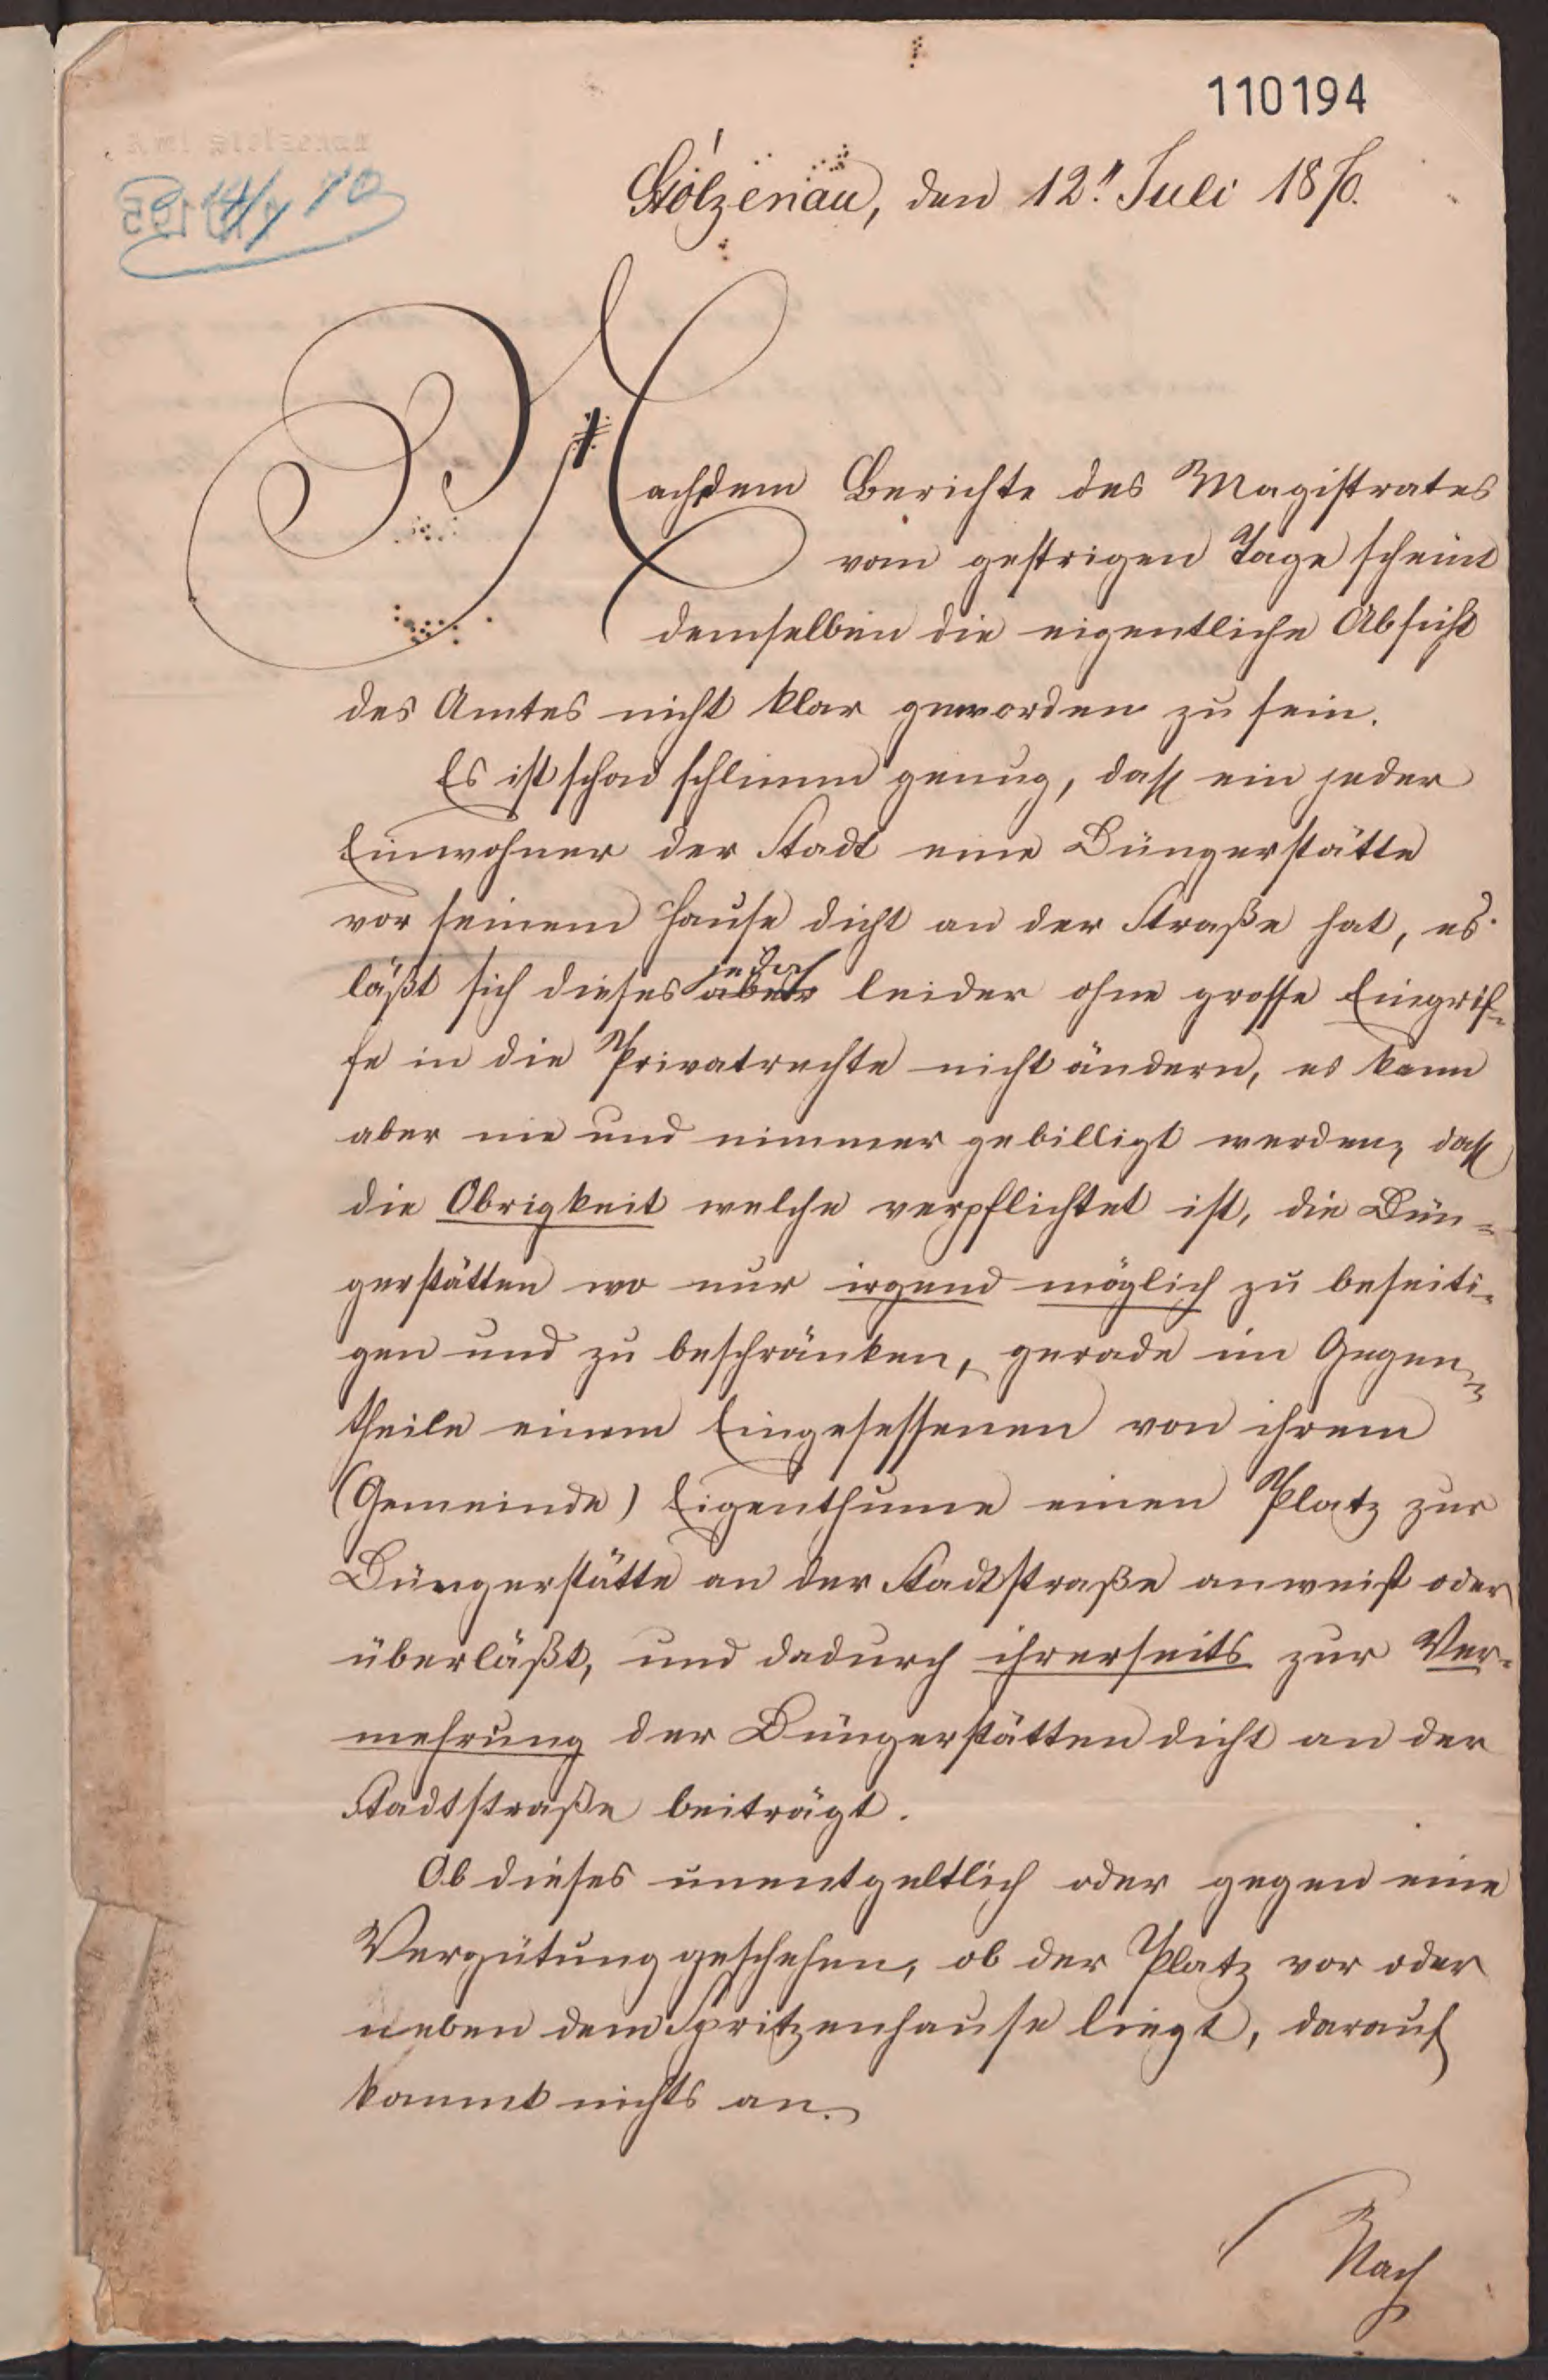 110194
14/7 70
Stolzenau, den 12. Juli 1870.
Nach dem Berichte des Magistrates
vom gestrigen Tage scheint
demselben die eigentliche Absicht
des Amtes nicht klar geworden zu sein.
Es ist schon schlimm genug, dass ein jeder
Einwohner der Stadt eine Düngerstätte
vor seinem Hause dicht an der Straße hat, es
jedoch
läßt sich dieses aber leider ohne grosse Eingrif-
fe in die Privatrechte nicht ändern, es kann
aber nie und nimmer gebilligt werden, dass
die Obrigkeit welche verpflichtet ist, die Dün-
gerstätten wo nur irgend möglich zu beseiti-
gen und zu beschränken, gerade im Gegen-
theile einem Eingesessenen von ihrem
(Gemeinde) Eigenthume einen Platz zur
Düngerstätte an der Stadtstraße anweist oder
überläßt, und dadurch ihrerseits zur Ver-
mehrung der Düngerstätten dicht an der
Stadtstraße beiträgt.
Ob dieses unentgeltlich oder gegen eine
Vergütung geschehen, ob der Platz vor oder
neben dem Spritzenhause liegt, darauf
kommt nichts an.
Nach